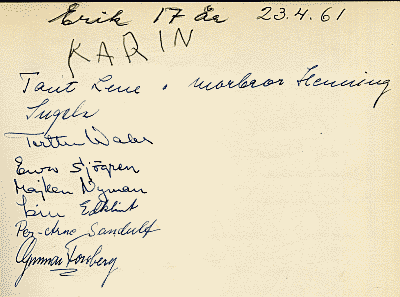 Erik 17 år 23.4.61
KARIN
Tant Lene o morbror Henning
Ingela
Ewa Sjögren
Majken Nyman
Edklint
Per-Arne Sandulf
Gunnar Forsberg